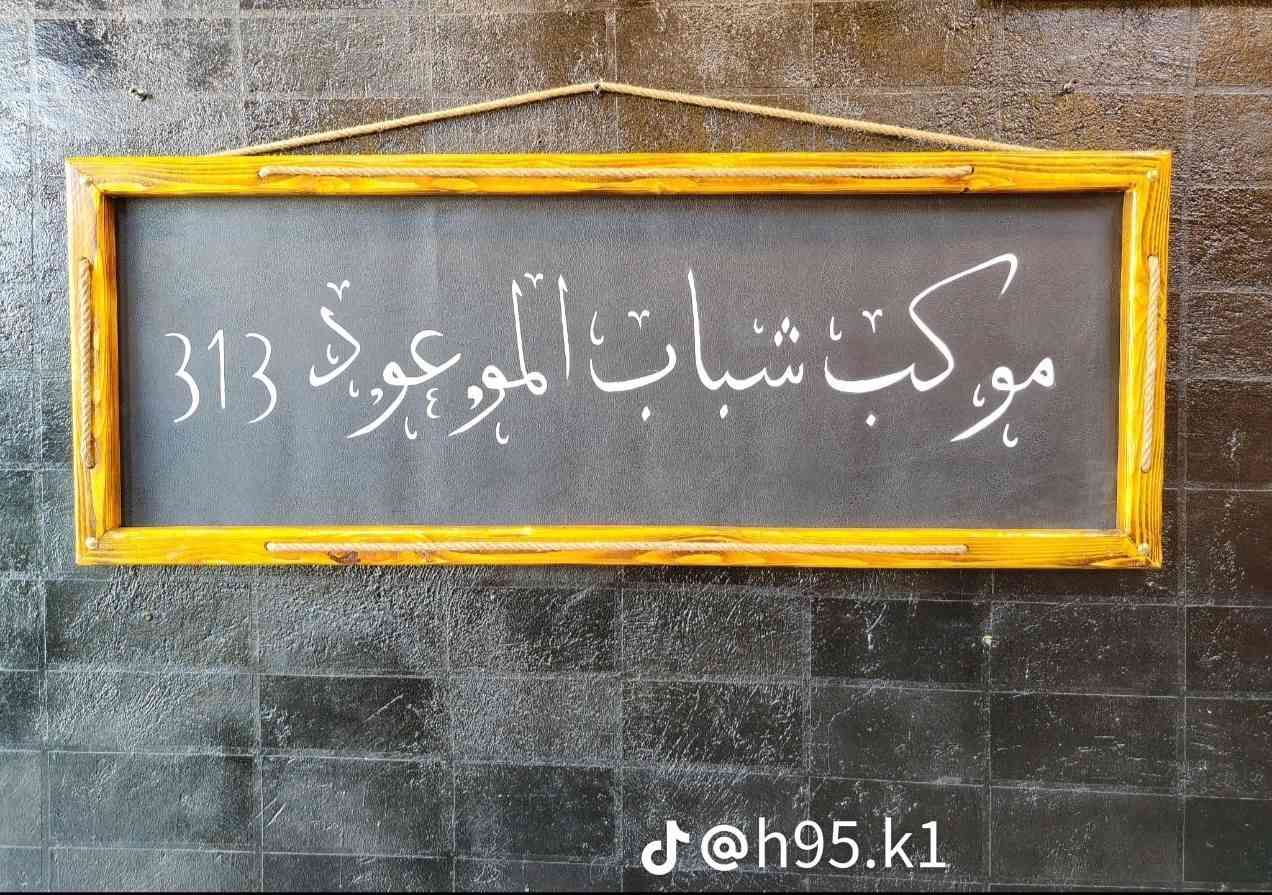 موكب شباب الموعود 313
@h95.k1